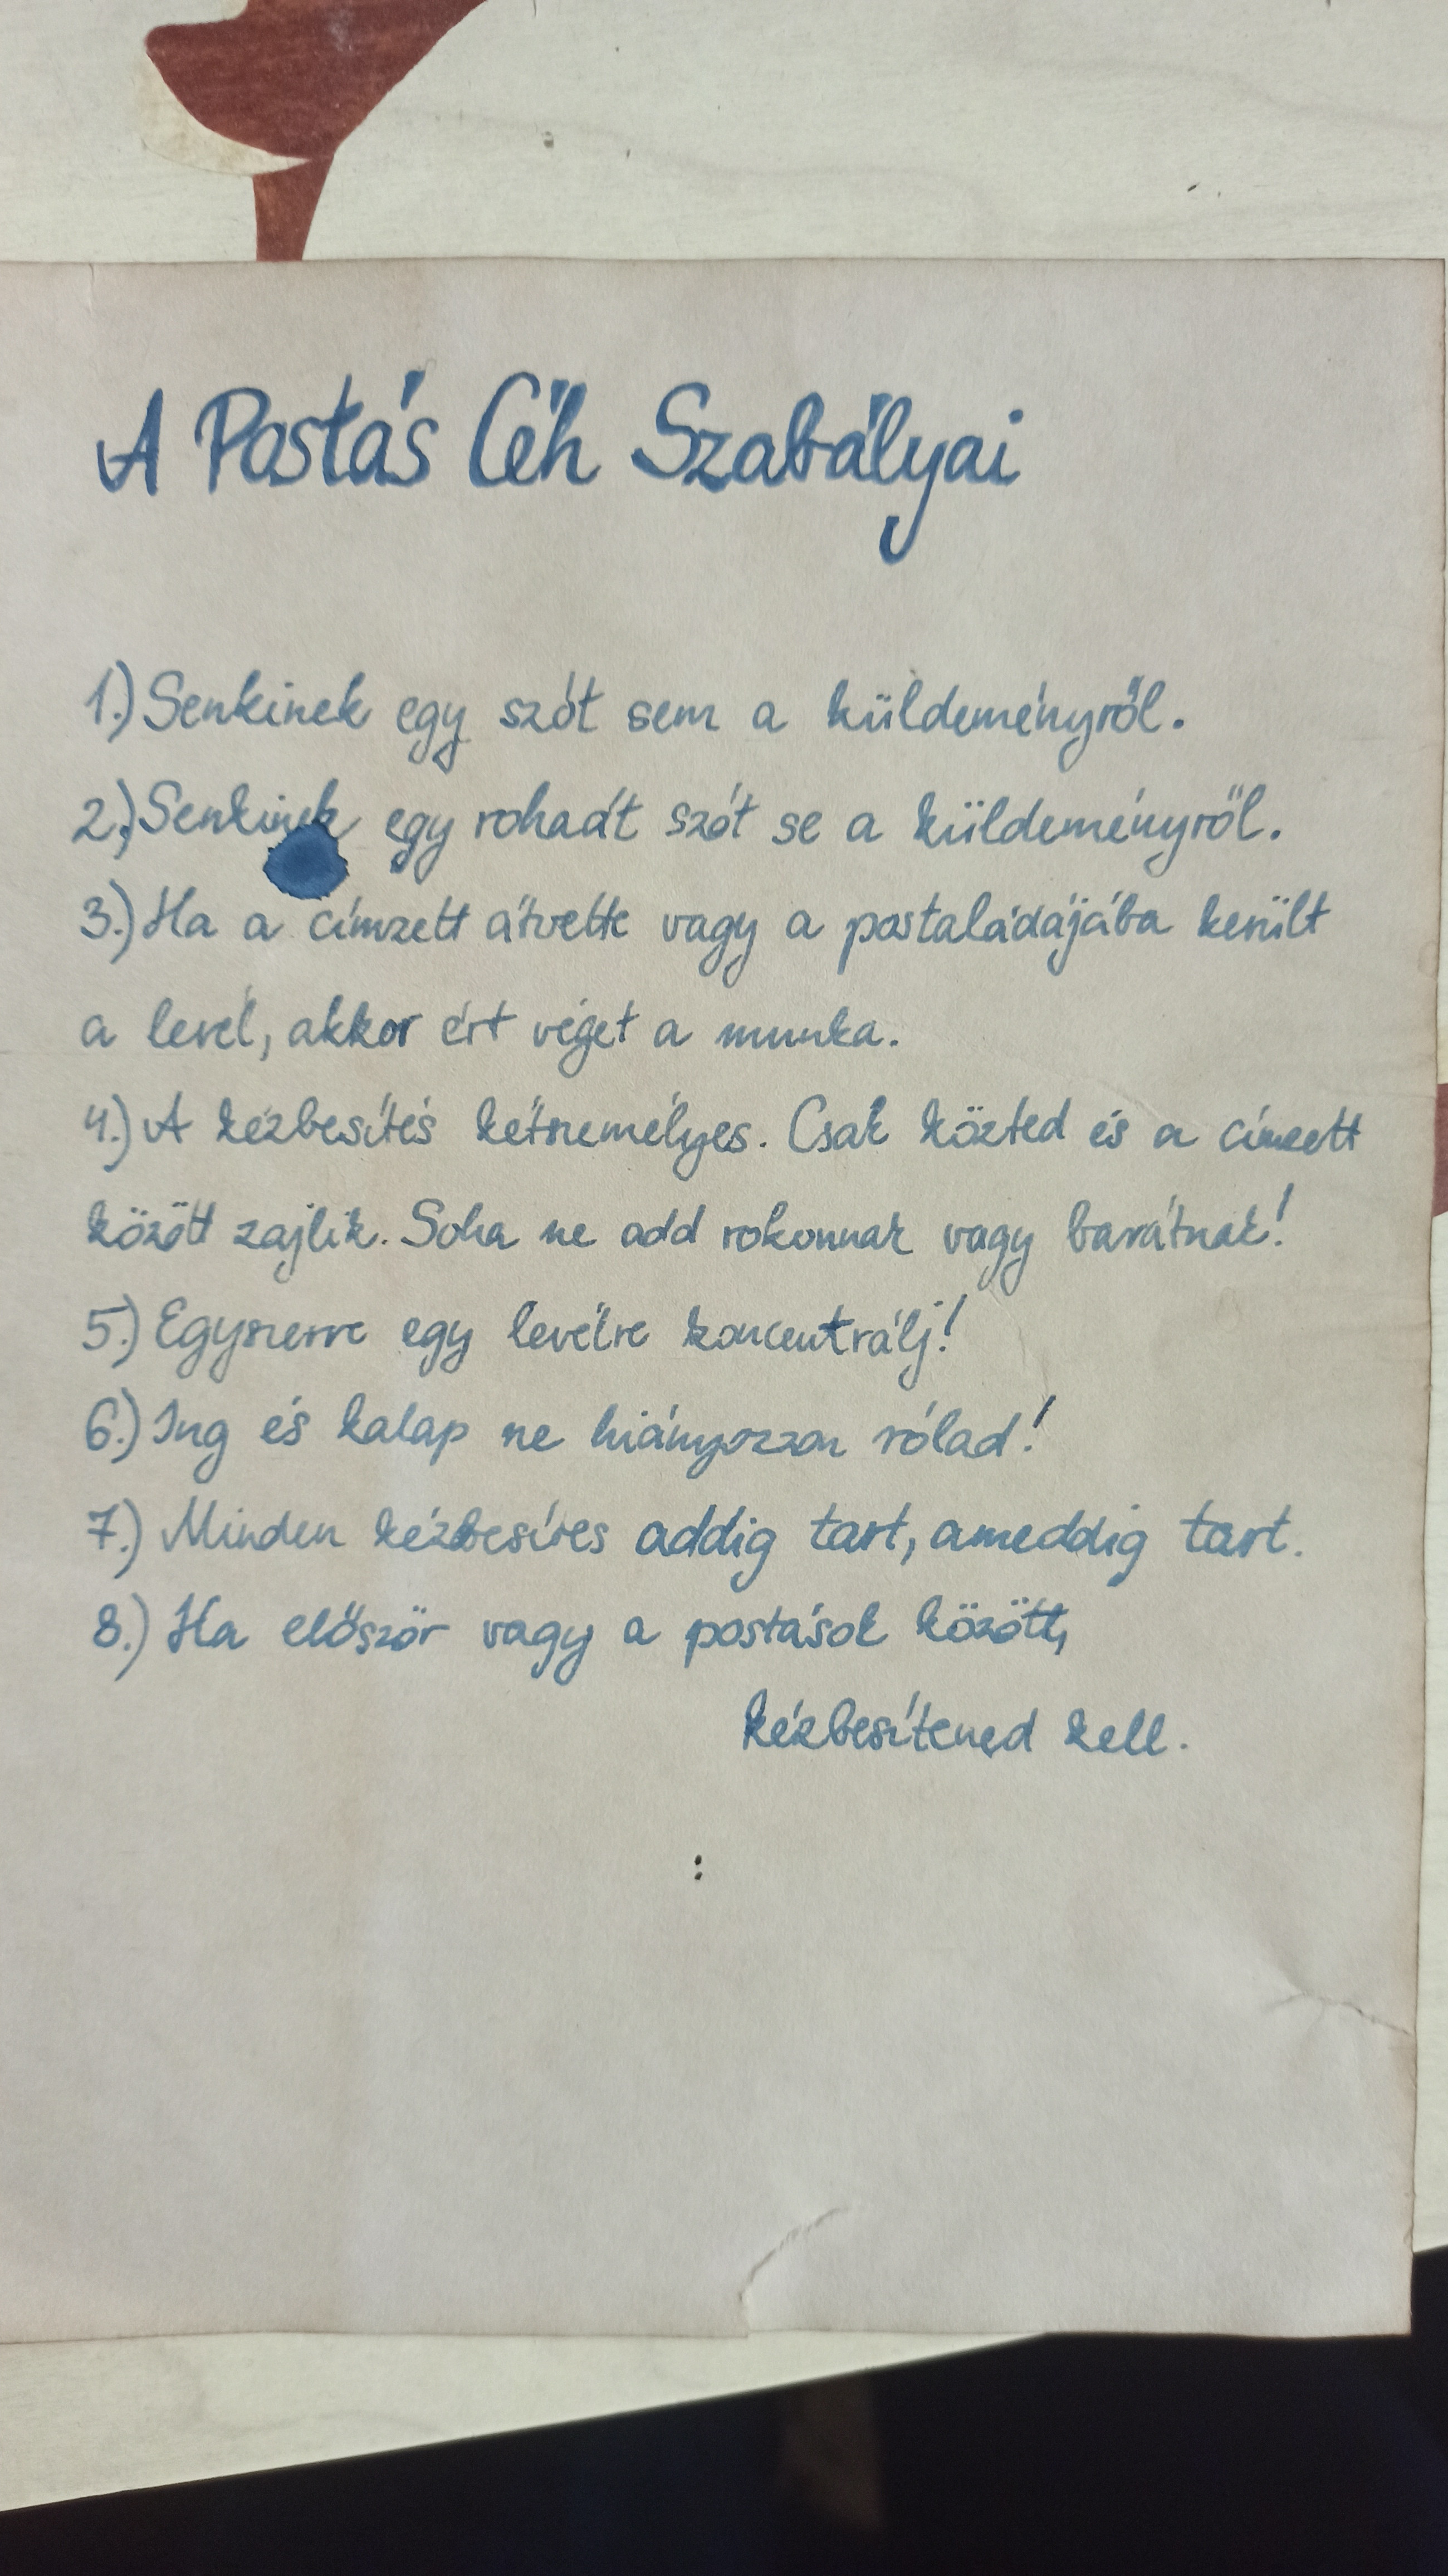 A Postás Céh Szabályai
1.) Senkinek egy szót sem a küldeményről.
2.) Senkinek egy rohadt szót se a küldeményről.
3.) Ha a címzett átvette vagy a postaládájába került
a levél, akkor ért véget a munka.
4.) A kézbesítés kétszemélyes. Csak közted és a címzett
között zajlik. Soha ne add rokonnak vagy barátnak!
5.) Egyszerre egy levélre koncentrálj!
6.) Ing és kalap ne hiányozzon rólad!
7.) Minden kézbesítés addig tart, ameddig tart.
8.) Ha először vagy a postások között,
kézbesítened kell.